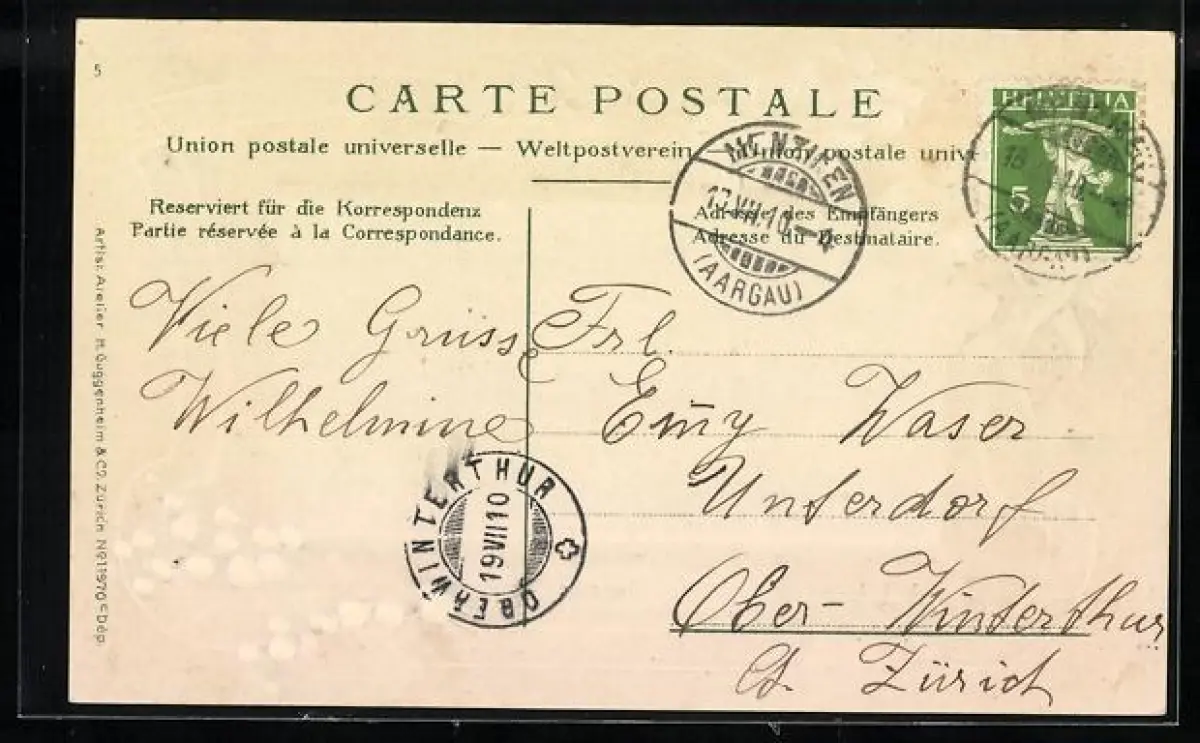 5
CARTE POSTALE
Union postale universelle — Weltpostverein — Union postale unive
Reserviert für die Korrespondenz
Partie réservée à la Correspondance.
Adresse des Empfängers
Adresse du Destinataire.
MENZIKEN
(AARGAU)
HELVETIA
5
(AARGAU)
Viele Grüsse
Wilhelmine
Frl.
Emy Waser
Unterdorf
Ober-Winterthur
Ct. Zürich
OBERWINTERTHUR
19 VII 10
Artist. Atelier H. Guggenheim & Co. Zürich No 11970 Dép.